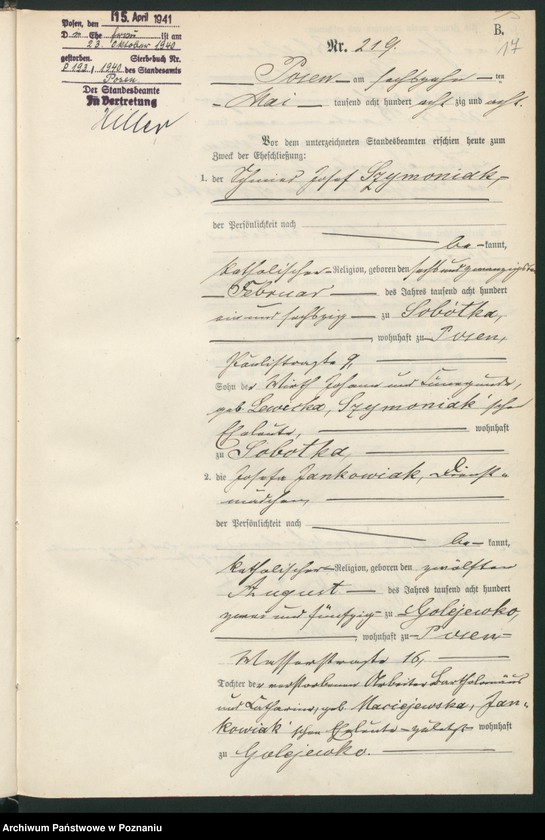 Posen, den 15. April 1941
D..... Ehe frau ist am
23. Oktober 1940
gestorben. Sterbebuch Nr.
P 193/1940 des Standesamts
Posen
Der Standesbeamte
In Vertretung
Hiller
B.
17
Nr. 219.
Posen am sechszehnten
Mai tausend acht hundert acht zig und acht.
Vor dem unterzeichneten Standesbeamten erschien heute zum
Zweck der Eheschließung:
1. der Schmied Josef Szymoniak,
der Persönlichkeit nach
be-kannt,
katholischer Religion, geboren den sechsundzwanzigsten
Februar des Jahres tausend acht hundert
ein und sechszig zu Sobótka,
, wohnhaft zu Posen,
Paulistrasse 9,
Sohn des Wirth Johann und Kunegunde,
geb. Lewecka, Szymoniak'schen
Eheleute, wohnhaft
zu Sobótka,
2. die Josefa Jankowiak, Dienst-
mädchen,
der Persönlichkeit nach
be-kannt,
katholischer Religion, geboren den zwölften
August des Jahres tausend acht hundert
zwei und fünfzig zu Golejewko,
, wohnhaft zu Posen
Wasserstrasse 16,
Tochter der verstorbenen Arbeiter Bartholomäus
und Catharina, geb. Maciejewska, Jan-
kowiak'schen Eheleute zuletzt wohnhaft
zu Golejewko.
Archiwum Państwowe w Poznaniu